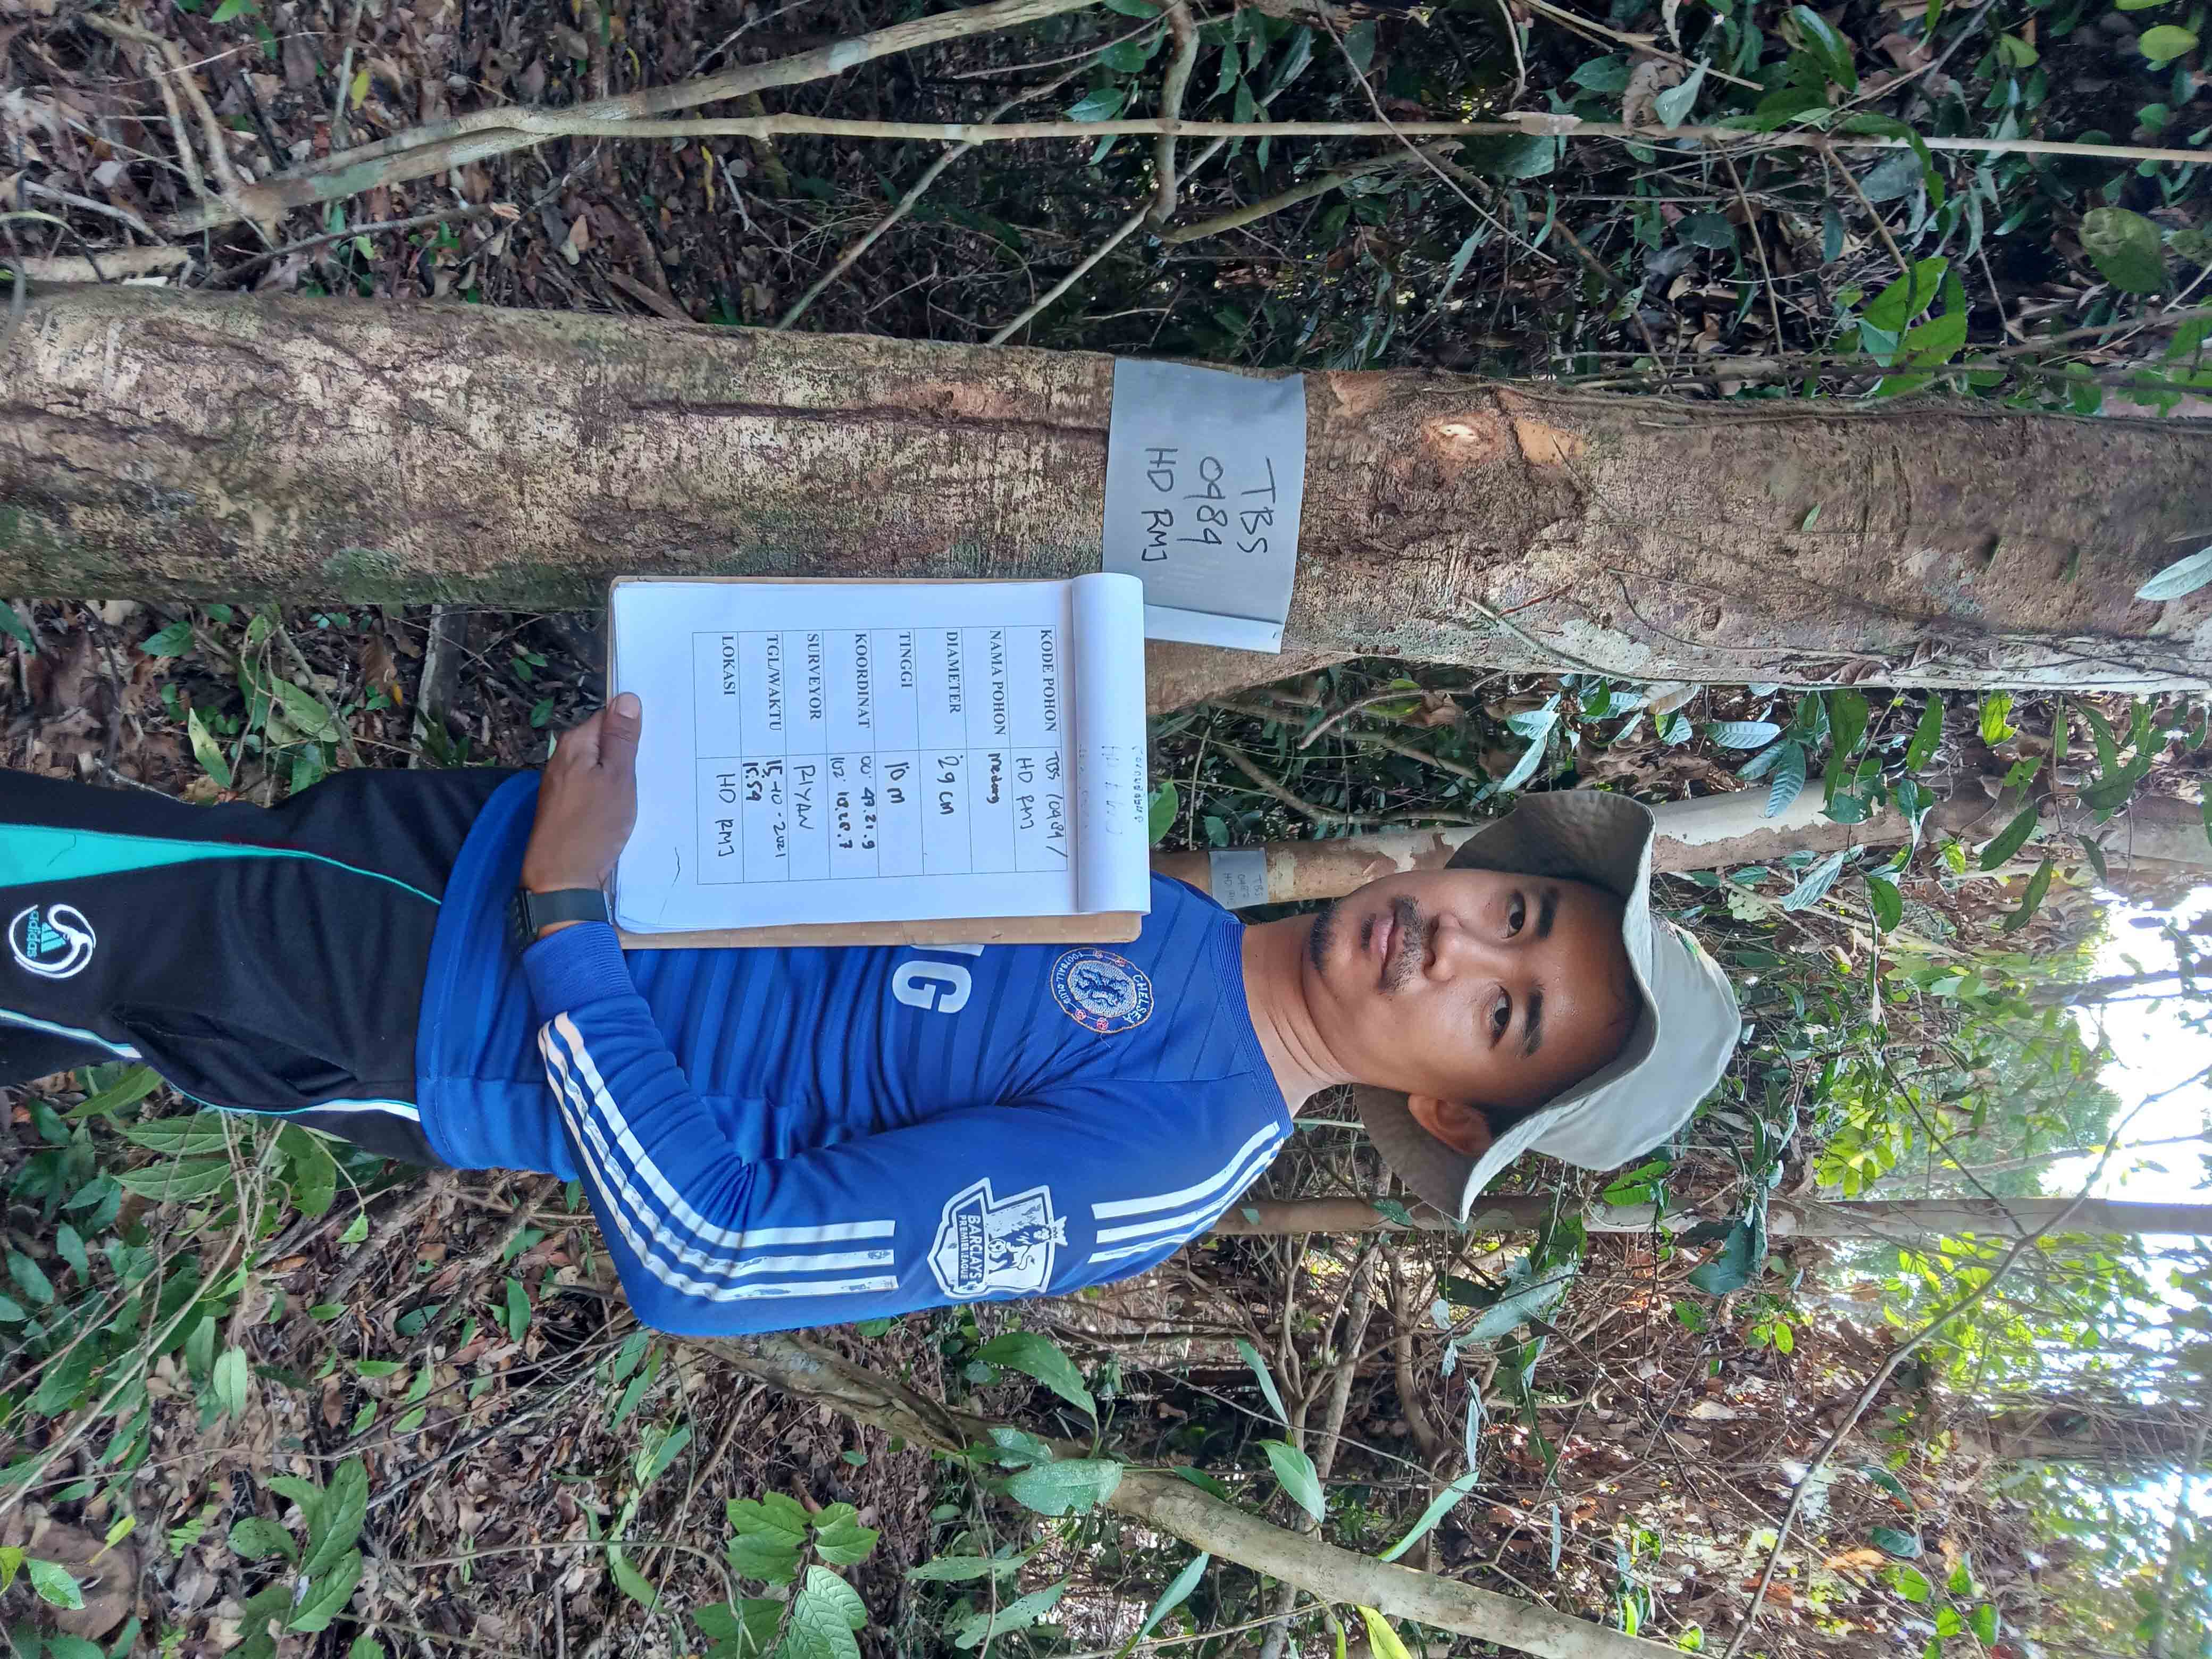 TBS
0484
HD RMJ
TBS
HD RMJ
KODE POHON TBS /0484/
HD RMJ
NAMA POHON Medang
DIAMETER 29 cm
TINGGI 10 m
KOORDINAT 00° 47.21.9
102° 18.28.7
SURVEYOR RIYAN
TGL/WAKTU 15-10-2021
15:59
LOKASI HD RMJ
CHELSEA
FOOTBALL CLUB
NG
BARCLAYS
PREMIER LEAGUE
adidas